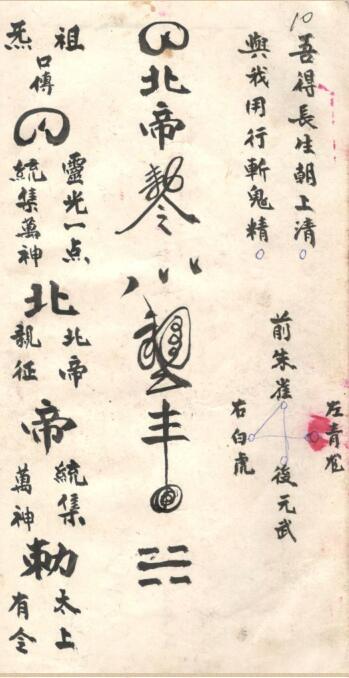 10
吾得長生朝上清
與我用行斬鬼精
前朱雀
左青龙
右白虎
後元武
北帝
祖炁
口傳
靈光一点
統集萬神
北
北帝
親征
帝
統集
萬神
勅
太上
有令